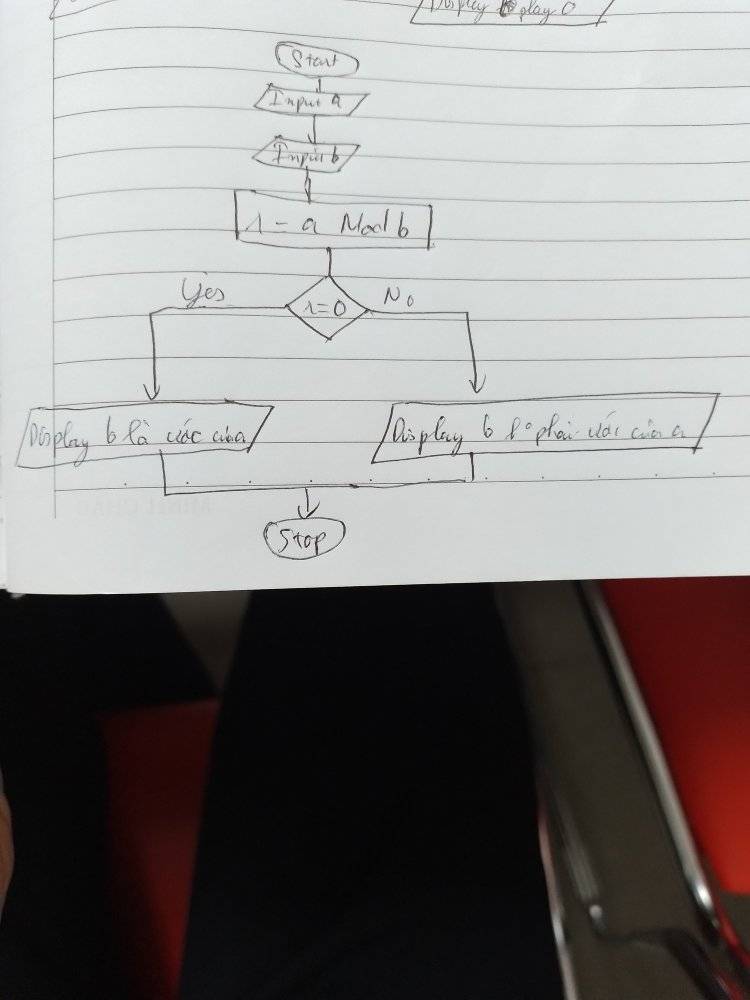 Display play 0
Start
Input a
Input b
r = a Mod b
Yes
r=0
No
Display b là ước của a
Display b k° phải ước của a
Stop